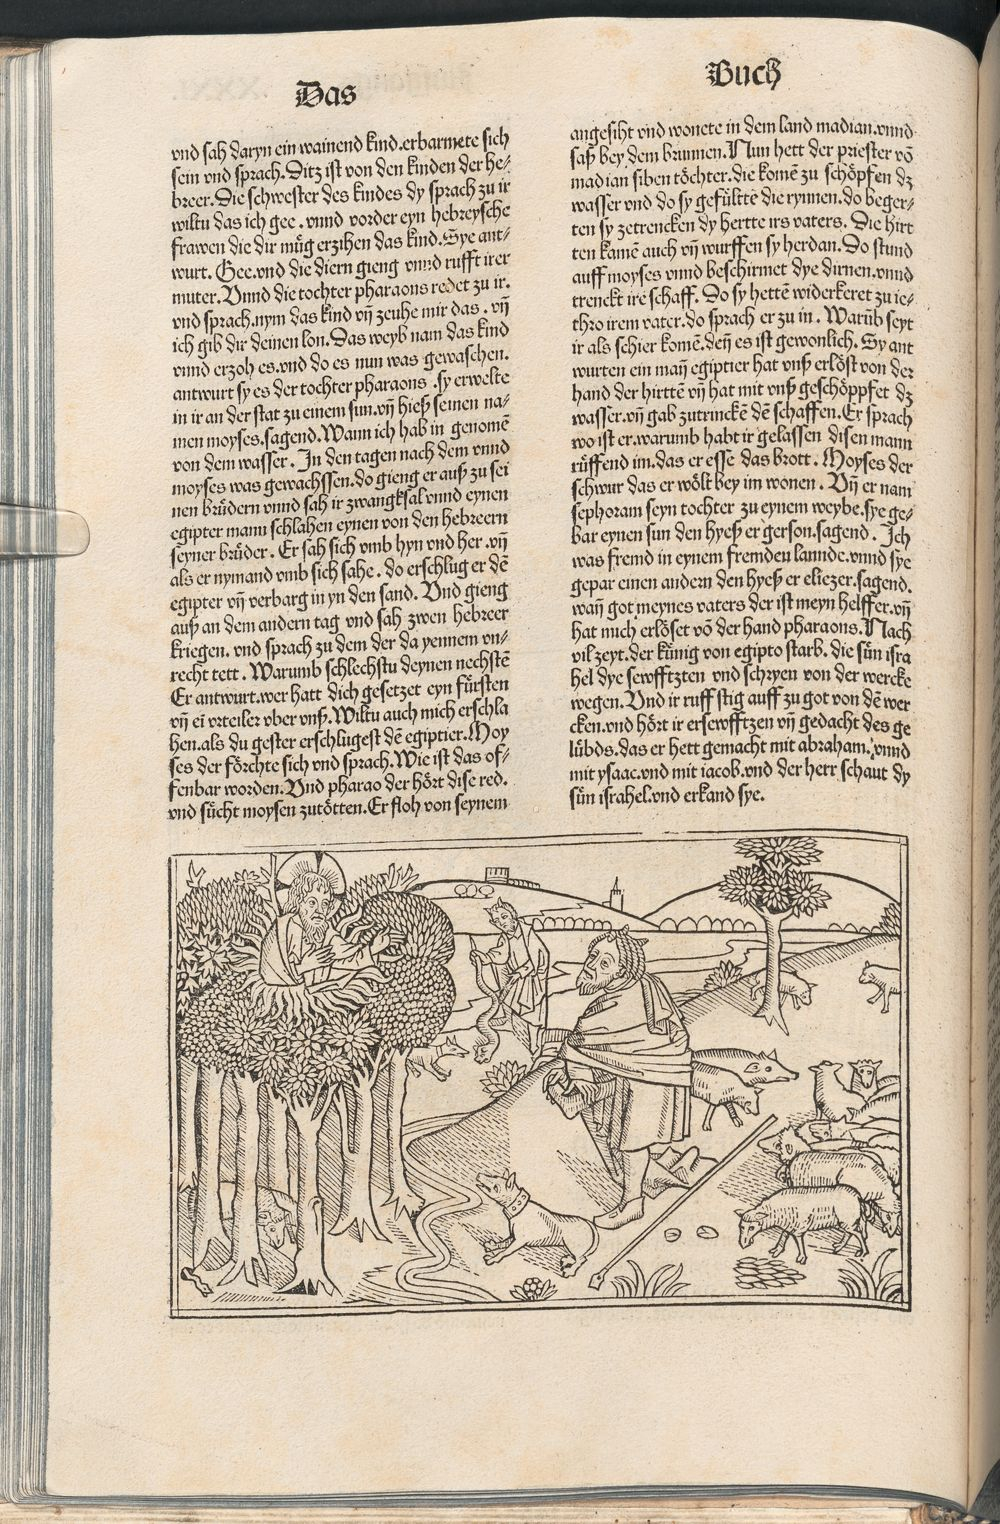 Das
Buch
vnd sah daryn ein wainend kind.erbarmete sich
sein vnd sprach. Ditz ist von den kinden der he⸗
breer. Die schwester des kindes dy sprach zu ir
wiltu das ich gee . vnnd vorder eyn hebreysche
frawen die dir müg erzihen das kind. Sye ant⸗
wurt. Gee.vnd die diern gieng vnnd rufft irer
muter. Vnnd die tochter pharaons redet zu ir.
vnd sprach.nym das kind vñ zeuhe mir das . vñ
ich gib dir deinen lon. Das weyb nam das kind
vnnd erzoh es.vnd do es nun was gewaschen.
antwurt sy es der tochter pharaons .sy erwelte
in ir an der stat zu einem sun.vñ hieß seinen na⸗
men moyses.sagend. Wann ich hab in genomẽ
von dem wasser . In den tagen nach dem vnnd
moyses was gewachssen.do gieng er auß zu sei
nen brüdern vnnd sah ir zwangksal vnnd eynen
egipter mann schlahen eynen von den hebreern
seyner brüder . Er sah sich vmb hyn vnd her .vñ
als er nymand vmb sich sahe . do erschlug er dẽ
egipter vñ verbarg in yn den sand. Vnd gieng
auß an dem andern tag vnd sah zwen hebreer
kriegen. vnd sprach zu dem der da yennem vn⸗
recht tett . Warumb schlechstu deynen nechstẽ
Er antwurt.wer hatt dich gesetzet eyn fürsten
vñ eĩ vrteiler vber vnß. Wiltu auch mich erschla
hen.als du gester erschlugest dẽ egiptier. Moy
ses der förchte sich vnd sprach. Wie ist das of⸗
fenbar worden. Vnd pharao der hört dise red.
vnd sücht moysen zutötten. Er floh von seynem
angesiht vnd wonete in dem land madian.vnnd
saß bey dem brunnen. Nun hett der priester võ
madian siben töchter.die komẽ zu schöpfen dz
wasser vnd do sy gefültte die rynnen.do beger⸗
ten sy zetrencken dy hertte irs vaters. Die hirt
ten kamẽ auch vñ wurffen sy herdan. Do stund
auff moyses vnnd beschirmet dye dirnen.vnnd
trenckt ire schaff. Do sy hettẽ widerkeret zu ie⸗
thro irem vater.do sprach er zu in . Warũb seyt
ir als schier komẽ.deñ es ist gewonlich. Sy ant
wurten ein mañ egiptier hat vnß erlöst von der
hand der hirttẽ vñ hat mit vnß geschöppfet dz
wasser.vñ gab zutrinckẽ dẽ schaffen. Er sprach
wo ist er.warumb habt ir gelassen disen mann
rüffend im.das er esse das brott . Moyses der
schwur das er wölt bey im wonen . Vñ er nam
sephoram seyn tochter zu eynem weybe.sye ge⸗
bar eynen sun den hyeß er gerson.sagend . Ich
was fremd in eynem fremden lannde.vnnd sye
gepar einen andern den hyeß er eliezer.sagend.
wañ got meynes vaters der ist meyn helffer.vñ
hat mich erlöset võ der hand pharaons. Nach
vil zeyt.der künig von egipto starb. die sün isra
hel dye sewfftzten vnd schryen von der wercke
wegen. Vnd ir ruff stig auff zu got von dẽ wer
cken.vnd hört ir ersewfftzen vñ gedacht des ge
lübds.das er hett gemacht mit abraham. vnnd
mit ysaac.vnd mit iacob.vnd der herr schaut dy
sün israhel.vnd erkand sye.